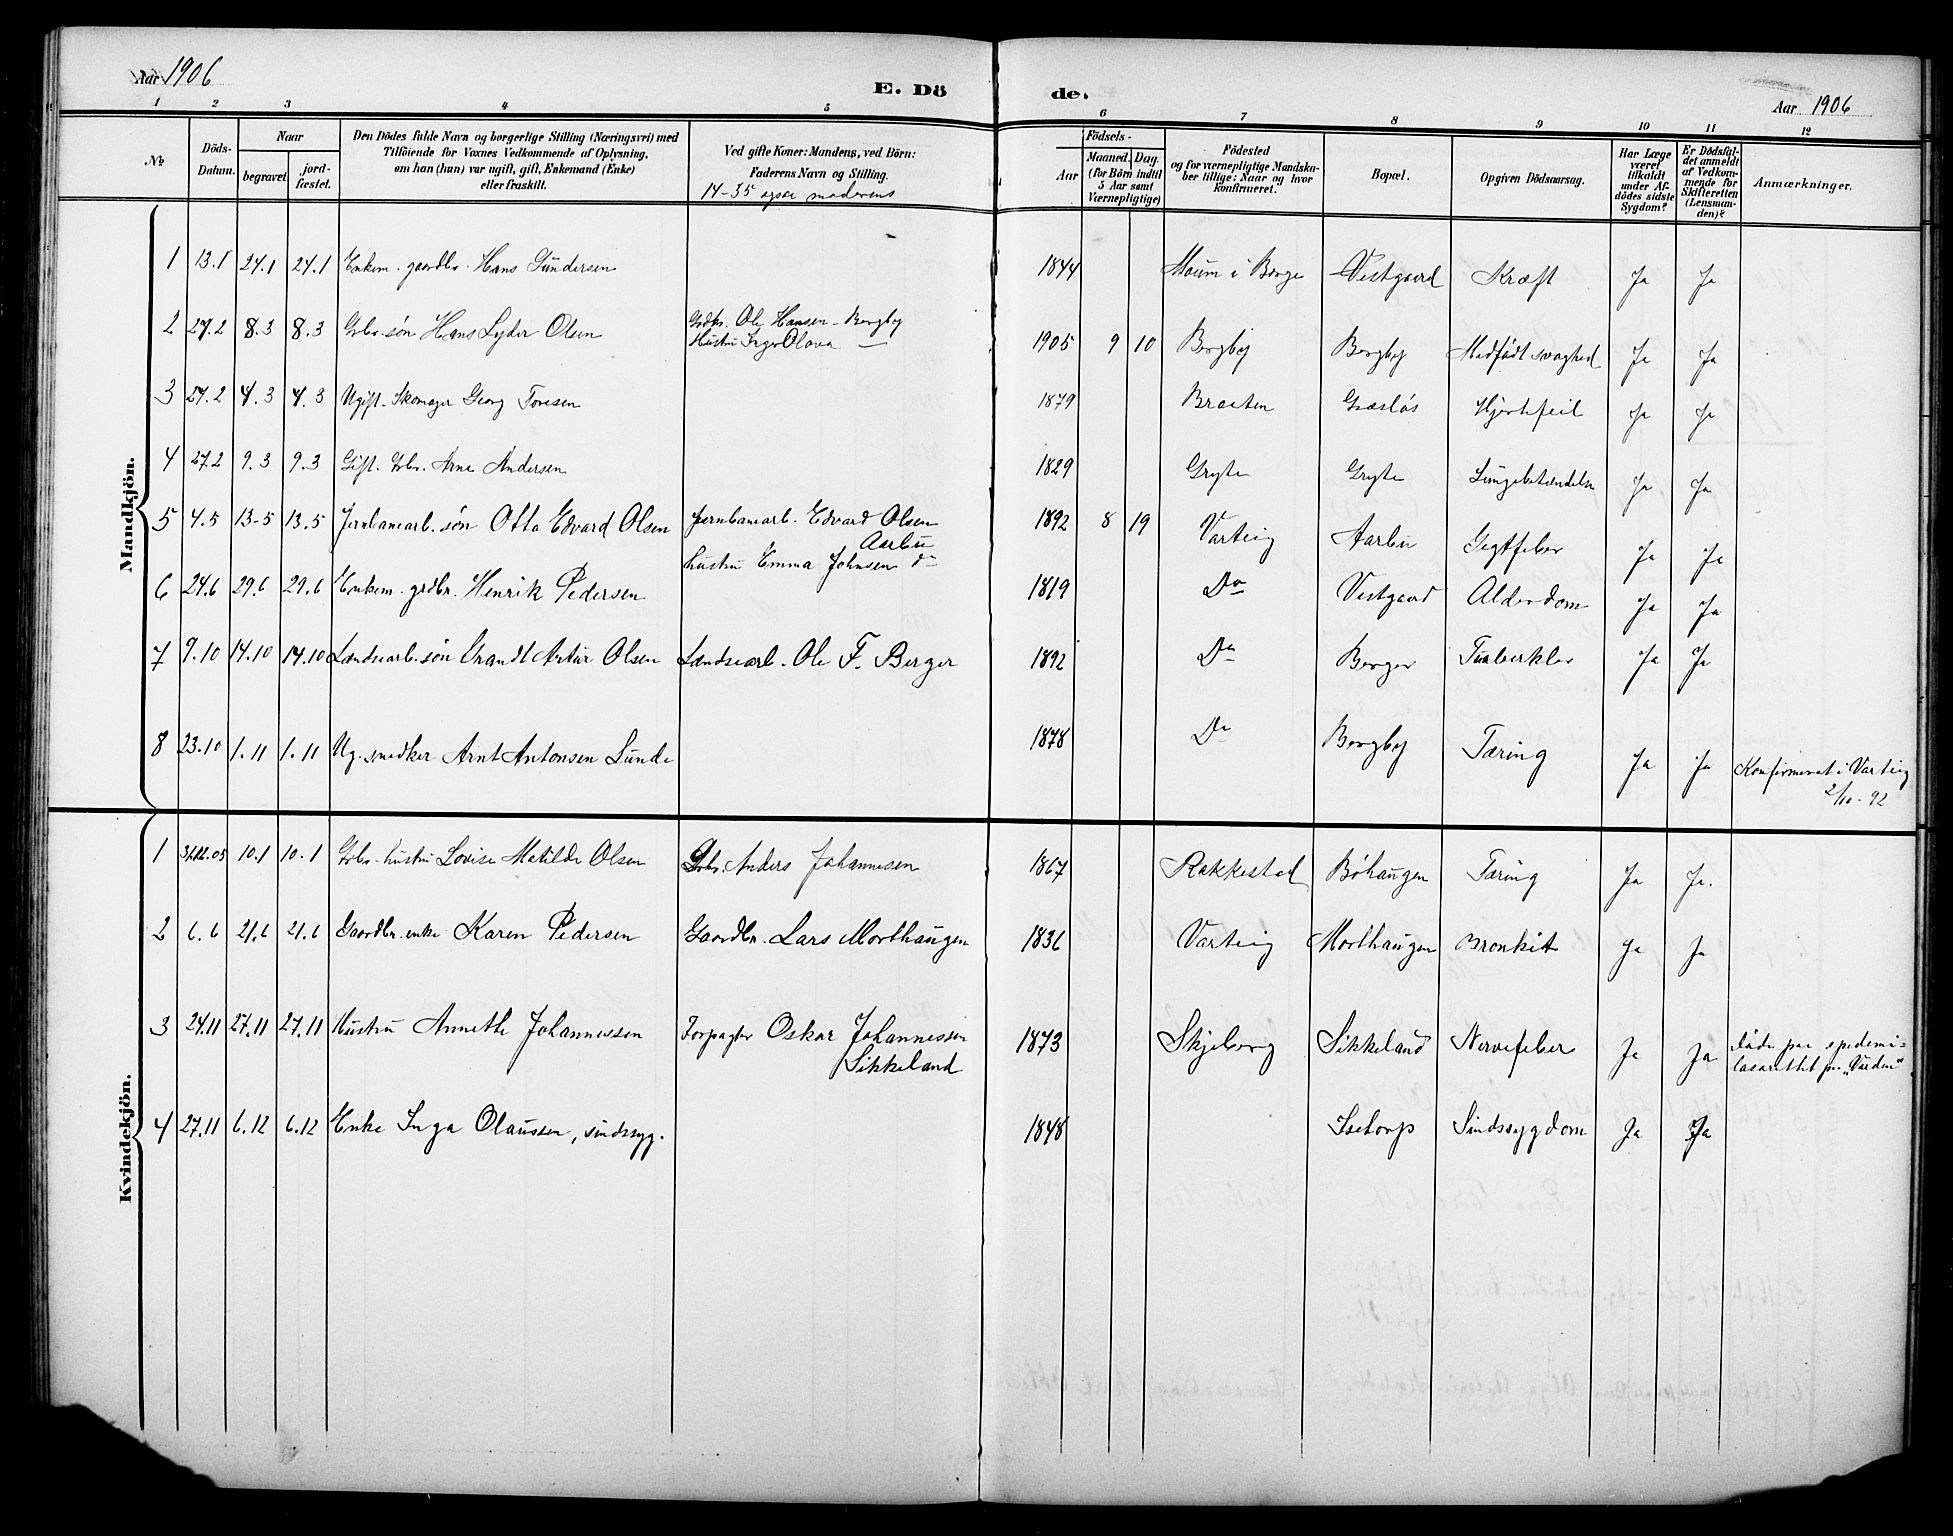 Aar 1906
E. Dö de.
Aar 1906
1 2 3 4 5 6 7 8 9 10 11 12
No
Döds-Datum.
Naar
begravet
jord-fæstet.
Den Dödes fulde Navn og borgerlige Stilling (Næringsvei) med
Tilföiende for Voxnes Vedkommende af Oplysning,
om han (hun) var ugift, gift, Enkemand (Enke)
eller fraskilt.
Ved gifte Koner: Mandens, ved Börn:
Faderens Navn og Stilling.
14-35 ogsaa moderens
Födsels-
Aar
Maaned. Dag.
(for Börn indtil
5 Aar samt
Værnepligtige)
Födested
og for værnepligtige Mandska-
ber tillige: Naar og hvor
konfirmeret.
Bopæl.
Opgiven Dödsaarsag.
Har Læge
været
tilkaldt
under Af-
dödes sidste
Sygdom?
Er Dödsfal-
det anmeldt
af Vedkom-
mende for
Skifteretten
(Lensman-
den)?
Anmærkninger.
Mandkjön.
1 13.1 24.1 24.1 Enkem. gaardbr. Hans Gundersen 1844 Moum i Borge Vestgaard Kræft Ja Ja
2 27.2 8.3 8.3 Gbr. søn Hans Lyder Olsen Grdbr. Ole Hansen - Bergby 1905 9 10 Bergby Bergby Medfødt svaghed Ja Ja
Hustru Inger Olava —
3 24.2 4.3 4.3 Ugift. Skomager Georg Toresen 1879 Braaten Græsløs Hjertefeil Ja Ja
4 27.2 9.3 9.3 Gift. Gbr. Arne Andersen 1829 Gryte Gryte Lungebetændelse Ja Ja
5 4.5 13-5 13.5 Jernbanearb. søn Otto Edvard Olsen Jernbanearb. Edvard Olsen 1892 8 19 Varteig Aarbu Gigtfeber Ja Ja
Aarbu
hustru Emma Johnsen do
6 24.6 29.6 29.6 Enkem. grdbr. Henrik Pedersen 1819 Do Vestgaard Alderdom Ja Ja
7 9.10 14.10 14.10 Landsearb. søn Brandt Artur Olsen Landsearb. Ole F. Berger 1892 Do Berger Tuberkler Ja Ja
8 23.10 1.11 1.11 Ug. snedker Arnt Antonsen Lunde 1878 Do Bergby Tæring Ja Ja Konfirmeret i Varteig
2/10-92
Kvindekjön.
1 31.12.05 10.1 10.1 Gbr. hustru Lovise Matilde Olsen Gbr. Anders Johannesen 1867 Rakkestad Bøhaugen Tæring Ja Ja.
2 6.6 21.6 21.6 Gaardbr. enke Karen Pedersen Gaardbr. Lars Morthaugen 1836 Varteig Morthaugen Bronkit Ja Ja
3 24.11 27.11 27.11 Hustru Annette Johannessen Forpagter Oskar Johannessen 1873 Skjeberg Sikkeland Nervefeber Ja Ja døde paa epedemi-
Sikkeland
lasarettet paa „Varden"
4 27.11 6.12 6.12 Enke Inga Olaussen, sindssyg. 1848 Isetorp Sindssygdom Ja Ja